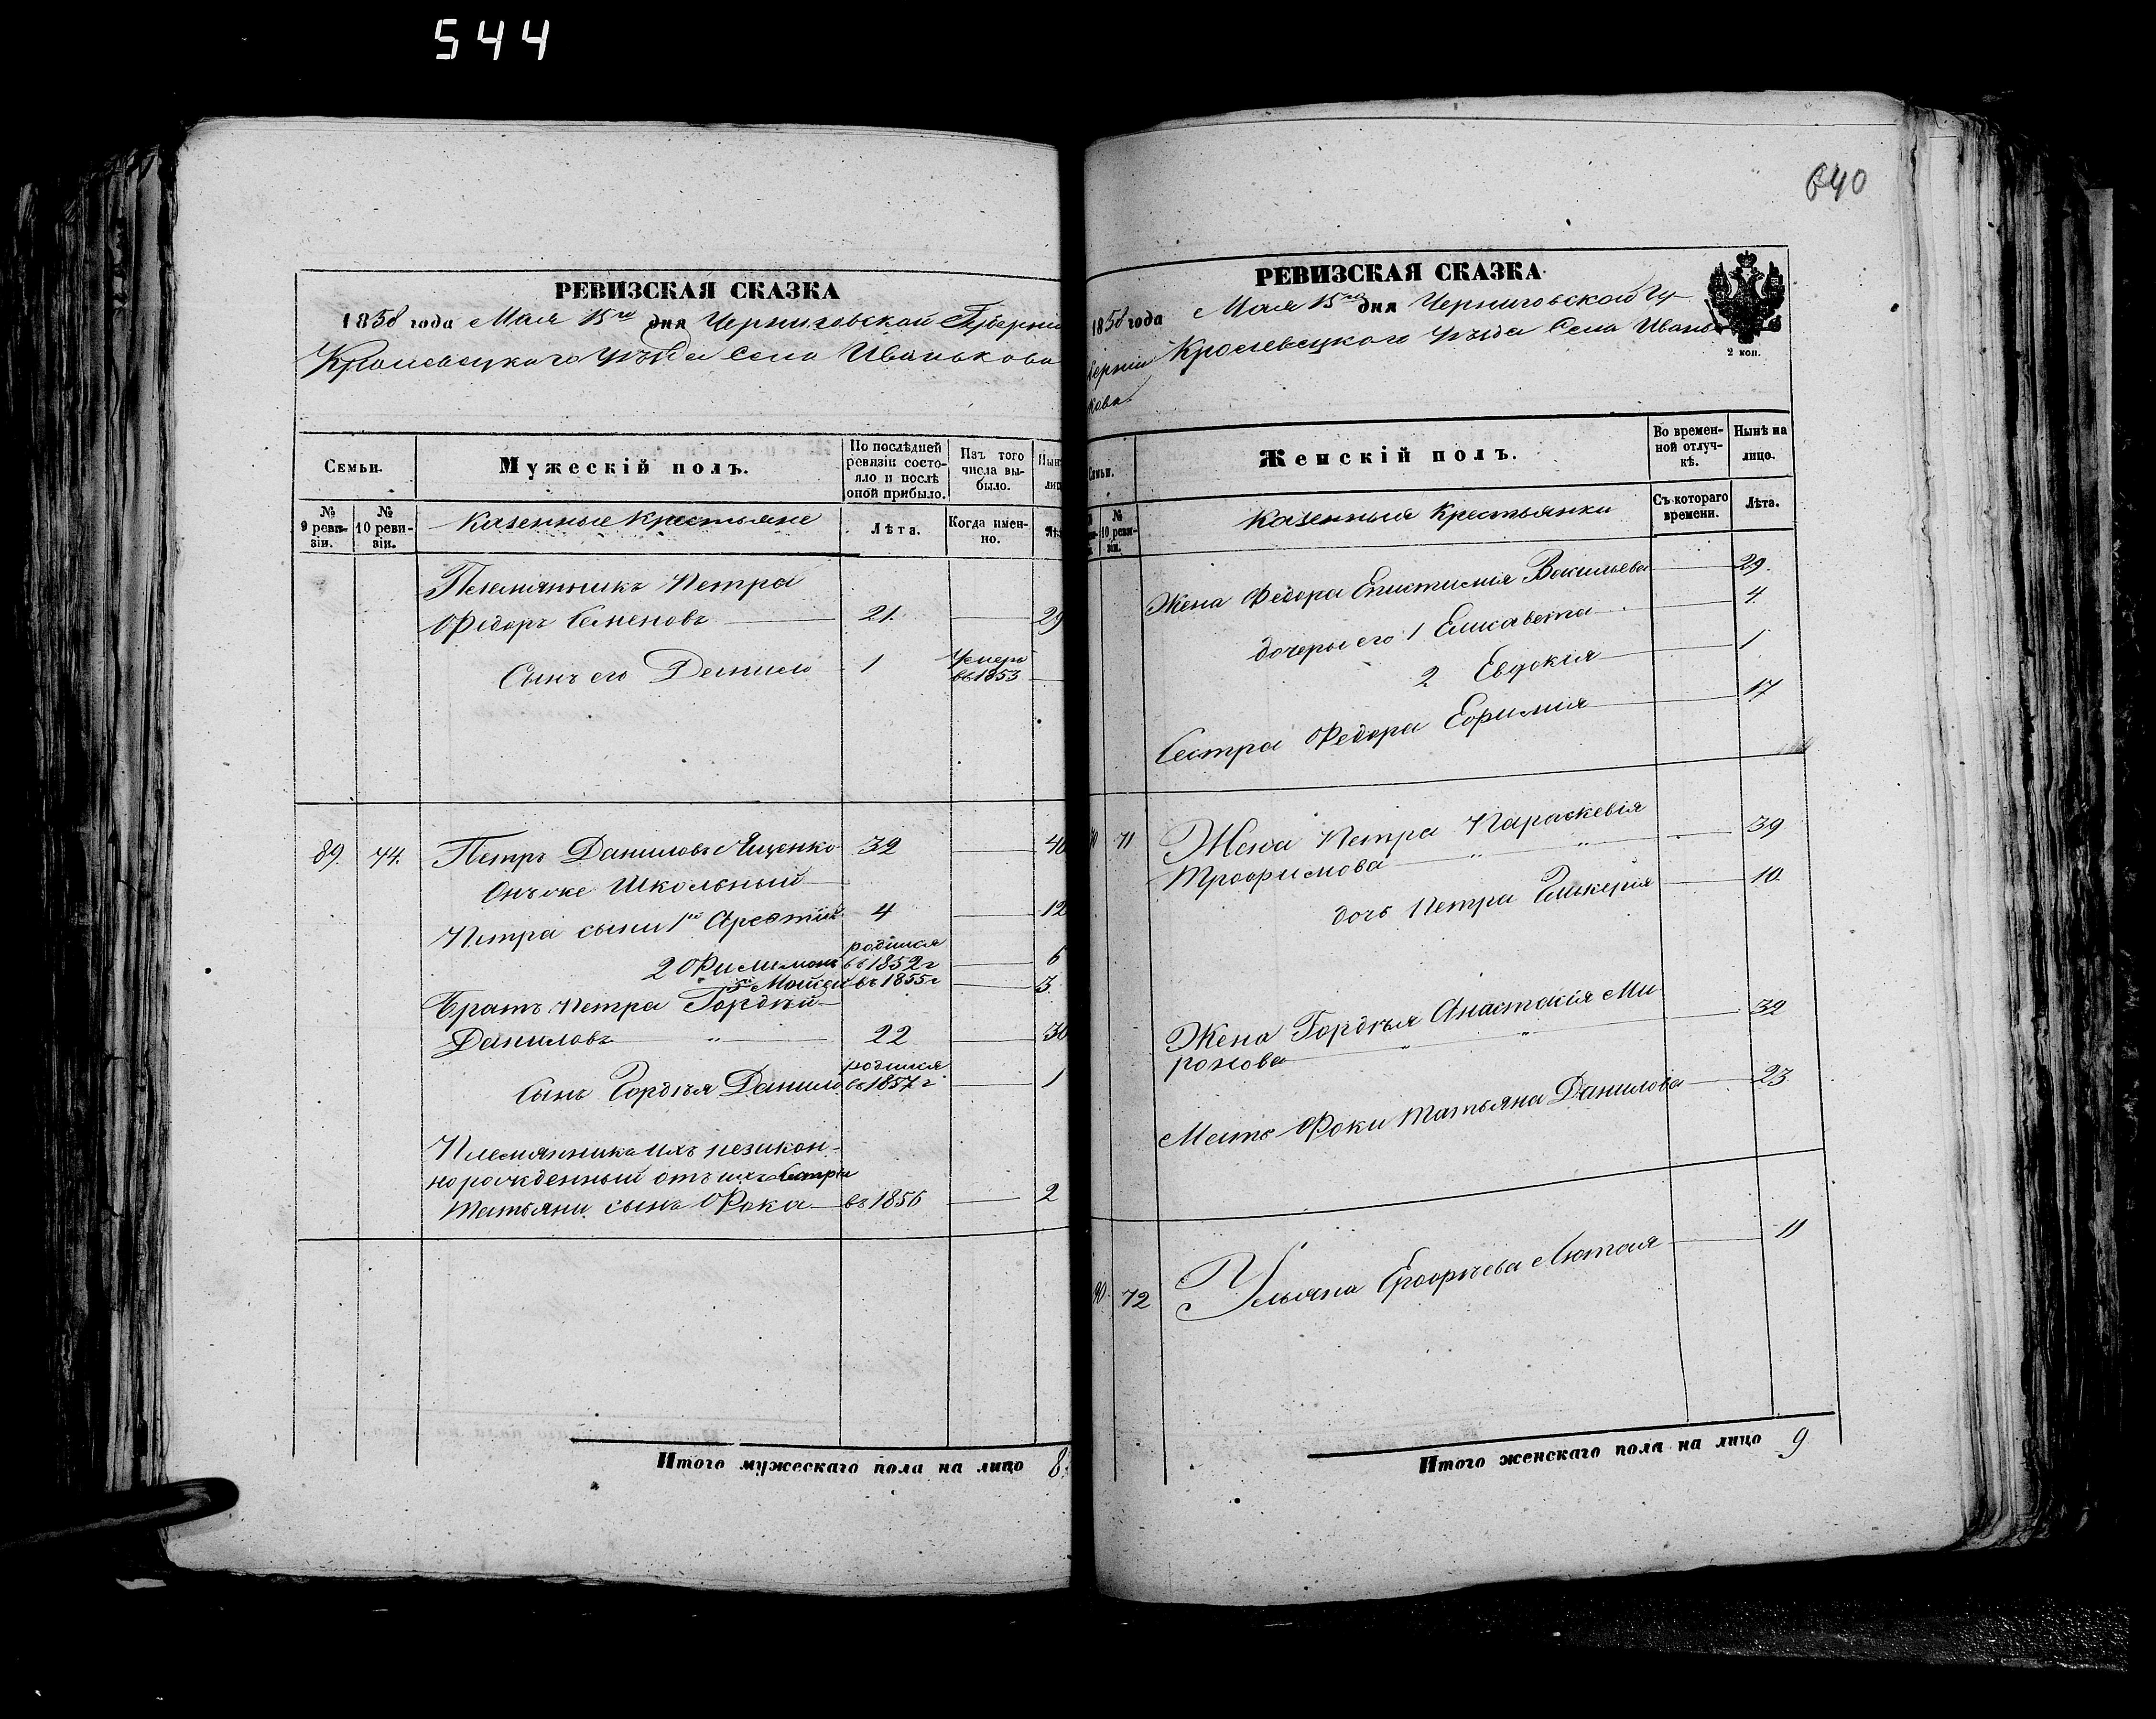 544
РЕВИЗСКАЯ СКАЗКА
1858 года Мая 15го дня Черниговской Губерни
Кролевецкаго Уѣзда Села Иванькова
Семьи.
Мужескій полъ.
По послѣдней ревизіи состояло и послѣ оной прибыло.
Изъ того числа выбыло.
Нын
лиц
№ 9 ревизіи.
№ 10 ревизіи.
Казенные Крестьяне
Лѣта.
Когда именно.
Лѣ
Племянникъ Петра
Федоръ Семеновъ 21. 29
Сынъ его Данило 1 Умеръ въ 1853
89. 74. Петръ Даниловъ Ященко 32 40
Онъ же Школьный
Петра сыны 1й Арефтій 4 12
родился
2 Филимонъ въ 1852 г 6
3 Мойсей въ 1855 г 3.
Братъ Петра Гордѣй
Даниловъ " 22 30
родился
Сынъ Гордѣя Данило въ 1857 г 1
Племянникъ ихъ незакон-
норожденный отъ ихъ Сестры
Татьяны сынъ Фока въ 1856 2
Итого мужескаго пола на лицо 8.
640
РЕВИЗСКАЯ СКАЗКА
1858 года Мая 15го дня Черниговской Гу-
берніи Кролевецкого Уѣзда Села Ивань-
кова.
2 коп.
Семьи.
Женскій полъ.
Во временной отлучкѣ.
Нынѣ на лицо.
№ 10 ревизіи.
Казенныя Крестьянки
Съ котораго времени.
Лѣта.
Жена Федора Епистимія Васильева 29.
дочери его 1 Елисавета 4.
2 Евдокія 1
Сестра Федора Ефимія 17
71 Жена Петра Параскевія
Трофимова " " 39
дочь Петра Гликерія 10.
Жена Гордѣя Анастасія Ми
ронова " " 32
Мать Фоки Татьяна Данилова 23.
90. 72 Ульяна Егорьева Лютая 11
Итого женскаго пола на лицо 9